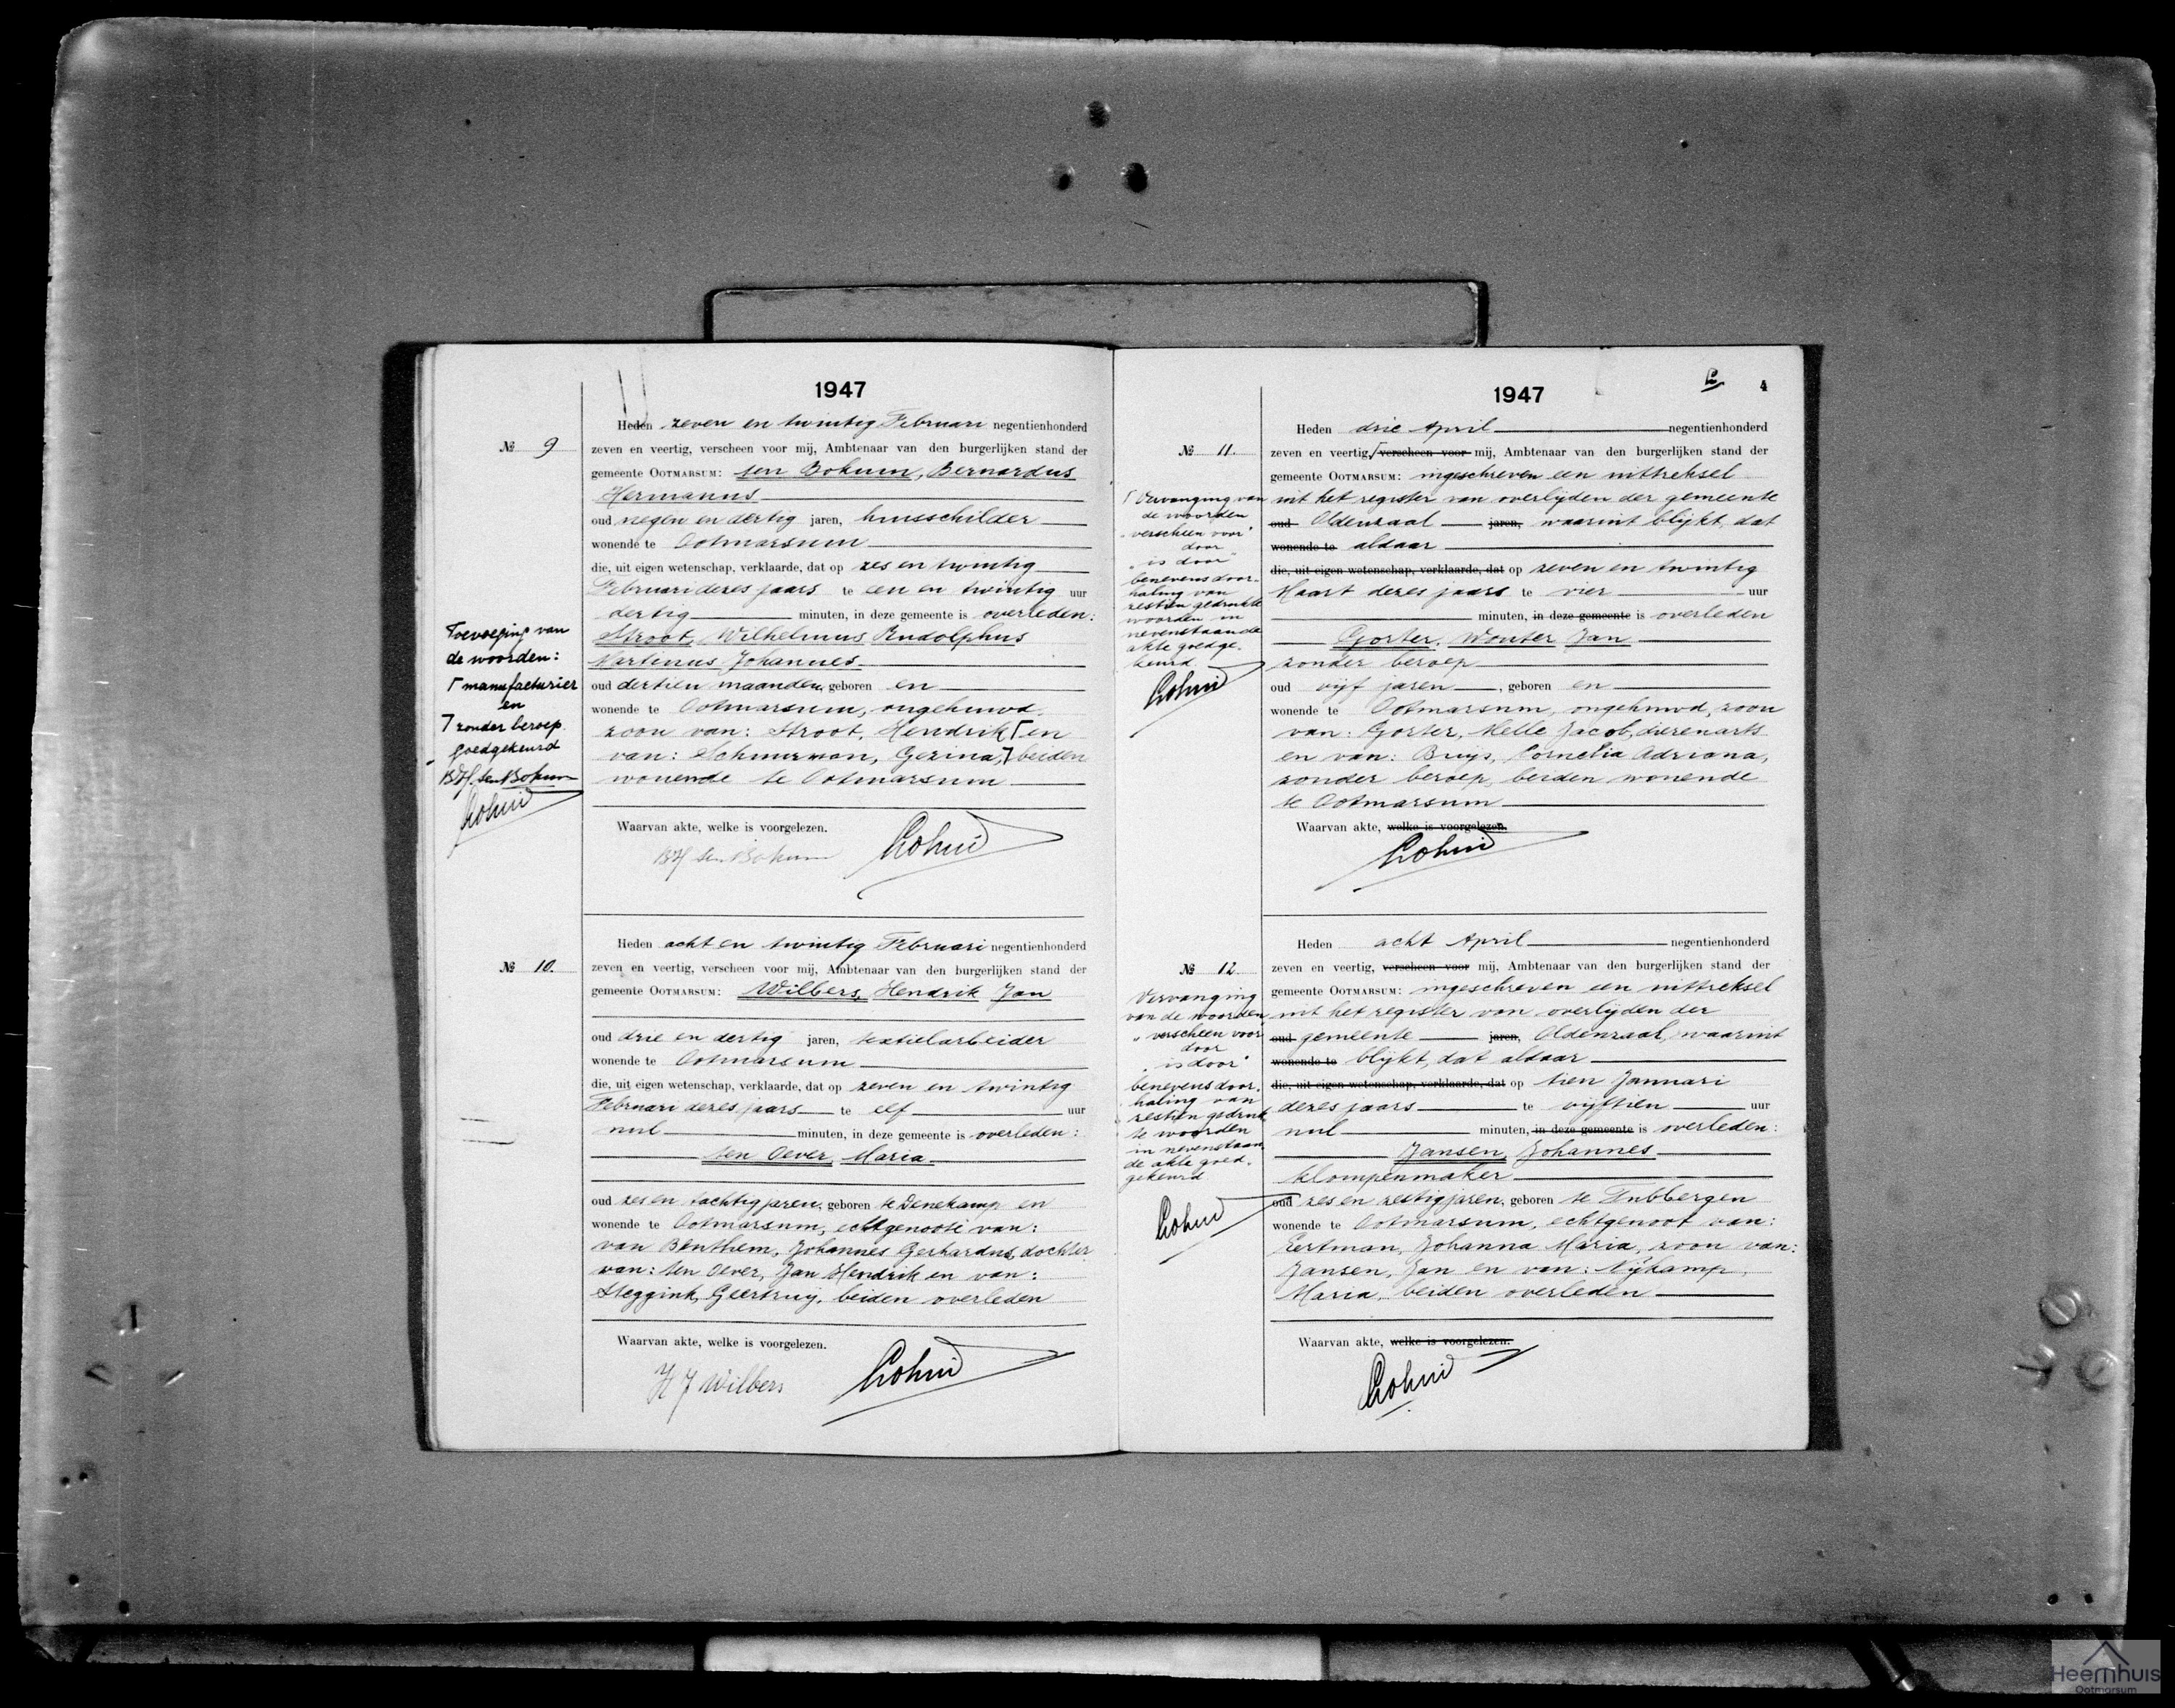 1947
Heden zeven en twintig Februari negentienhonderd
№ 9 zeven en veertig, verscheen voor mij, Ambtenaar van den burgerlijken stand der
gemeente OOTMARSUM: ten Bokum, Bernardus
Hermanus
oud negen en dertig jaren, huisschilder
wonende te Ootmarsum
die, uit eigen wetenschap, verklaarde, dat op zes en twintig
Februari dezes jaars te een en twintig uur
dertig minuten, in deze gemeente is overleden:
Stroot, Wilhelmus Rudolphus
Martinus Johannes
oud dertien maanden, geboren en
wonende te Ootmarsum, ongehuwd,
zoon van: Stroot, Hendrik ⌈ en
van: Schuurman, Gezina, ⌉ beiden
wonende te Ootmarsum
Toevoeging van
de woorden:
⌈ manufacturier
en
⌉ zonder beroep
goedgekeurd
BH. ten Bokum
Waarvan akte, welke is voorgelezen.
BH ten Bokum
Heden acht en twintig Februari negentienhonderd
№ 10. zeven en veertig, verscheen voor mij, Ambtenaar van den burgerlijken stand der
gemeente OOTMARSUM: Wilbers, Hendrik Jan
oud drie en dertig jaren, textielarbeider
wonende te Ootmarsum
die, uit eigen wetenschap, verklaarde, dat op zeven en twintig
Februari dezes jaars te elf uur
nul minuten, in deze gemeente is overleden:
ten Oever, Maria
oud zes en tachtig jaren, geboren te Denekamp en
wonende te Ootmarsum, echtgenoote van:
van Benthem, Johannes Gerhardus, dochter
van: ten Oever, Jan Hendrik en van:
Steggink, Geertruij, beiden overleden
Waarvan akte, welke is voorgelezen.
H J Wilbers
1947
4
Heden drie April negentienhonderd
№ 11. zeven en veertig, ⌈ verscheen voor mij, Ambtenaar van den burgerlijken stand der
gemeente OOTMARSUM: ingeschreven een uittreksel
uit het register van overlijden der gemeente
oud Oldenzaal jaren, waaruit blijkt, dat
wonende te aldaar
die, uit eigen wetenschap, verklaarde, dat op zeven en twintig
Maart dezes jaars te vier uur
minuten, in deze gemeente is overleden
Gorter, Wouter Jan
zonder beroep
oud vijf jaren, geboren en
wonende te Ootmarsum, ongehuwd, zoon
van: Gorter, Melle Jacob, dierenarts
en van: Bruijs, Cornelia Adriana,
zonder beroep, beiden wonende
te Ootmarsum
⌈ Vervanging van
de woorden
"verscheen voor"
door
"is door"
benevens door-
haling van
zestien gedrukte
woorden in
nevenstaande
akte goedge-
keurd
Waarvan akte, welke is voorgelezen.
Heden acht April negentienhonderd
№ 12. zeven en veertig, verscheen voor mij, Ambtenaar van den burgerlijken stand der
gemeente OOTMARSUM: ingeschreven een uittreksel
uit het register van overlijden der
oud gemeente jaren, Oldenzaal, waaruit
wonende te blijkt, dat aldaar
die, uit eigen wetenschap, verklaarde, dat op tien Januari
dezes jaars te vijftien uur
nul minuten, in deze gemeente is overleden:
Jansen, Johannes
klompenmaker
oud zes en zestig jaren, geboren te Tubbergen
wonende te Ootmarsum, echtgenoot van:
Eertman, Johanna Maria, zoon van:
Jansen, Jan en van: Nijkamp,
Maria, beiden overleden
Vervanging
van de woorden
"verscheen voor"
door
"is door"
benevens door-
haling van
zestien gedruk-
te woorden
in nevenstaan-
de akte goed-
gekeurd
Waarvan akte, welke is voorgelezen.
Heemhuis
Ootmarsum